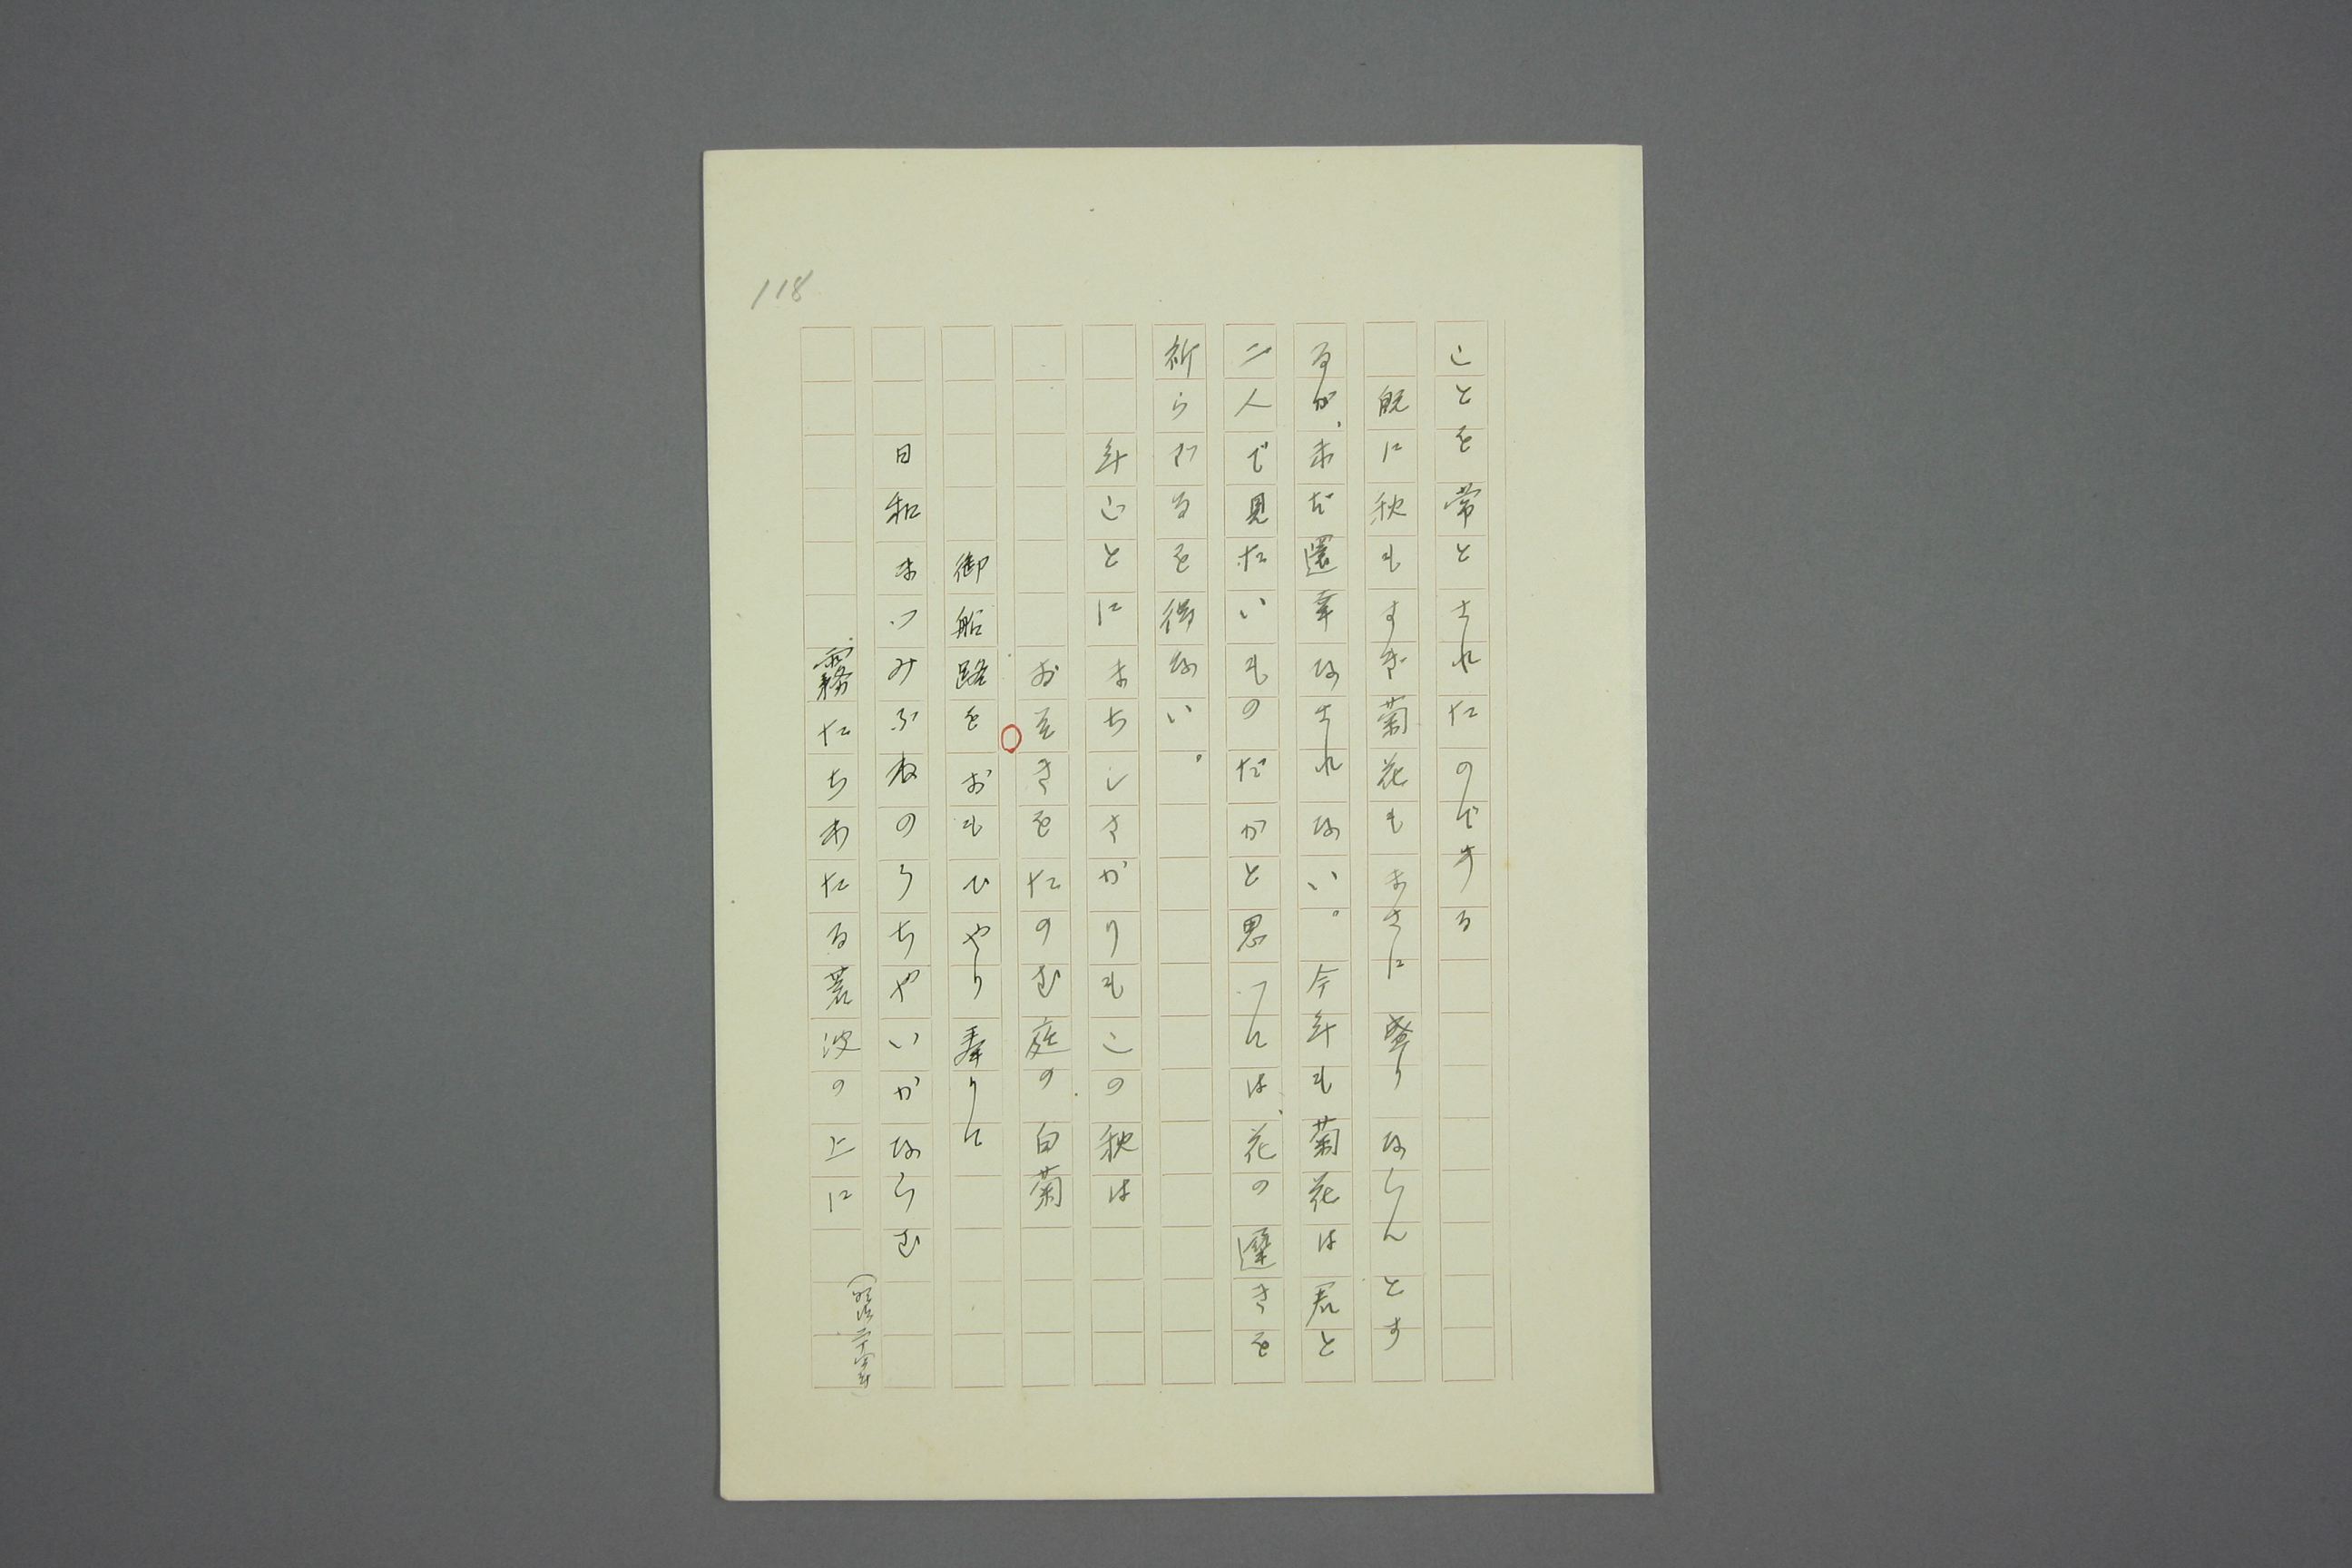 118
ことを常とされたのである
既に秋もすぎ菊花もまさに盛りならんとす
るが、未だ還幸なされない。今年も菊花は君と
二人で見たいものだがと思つては、花の遅きを
祈らざるを得ない。
年ごとにまちしさかりもこの秋は
おそきをたのむ庭の白菊
御船路をおもひやり奉りて
日和まつみふねのうちやいかならむ
霧たちわたる荒波の上に
(明治二十四年)